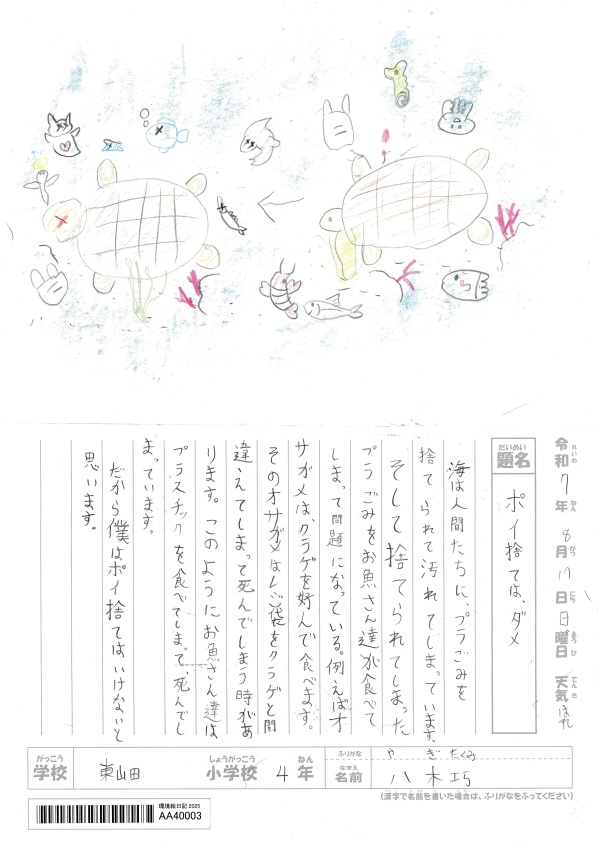 令和7年8月17日日曜日 天気はれ
れいわ ねん がつ にち ようび てんき
だいめい
題名 ポイ捨ては、ダメ
海は人間たちに、プラごみを
捨てられて汚れてしまっています。
そして捨てられてしまった
プラごみをお魚さん達が食べて
しまって問題になっている。例えばオ
サガメは、クラゲを好んで食べます。
そのオサガメはレジ袋をクラゲと間
違えてしまって死んでしまう時があ
ります。このようにお魚さん達は
プラスチックを食べてしまって、死んでし
まっています。
だから僕はポイ捨てはいけないと
思います。
がっこう しょうがっこう ねん
学校 東山田 小学校 4年
ふりがな やぎ たくみ
なまえ
名前 八木 巧
(漢字で名前を書いた場合は、ふりがなをふってください)
環境絵日記 2025
AA40003